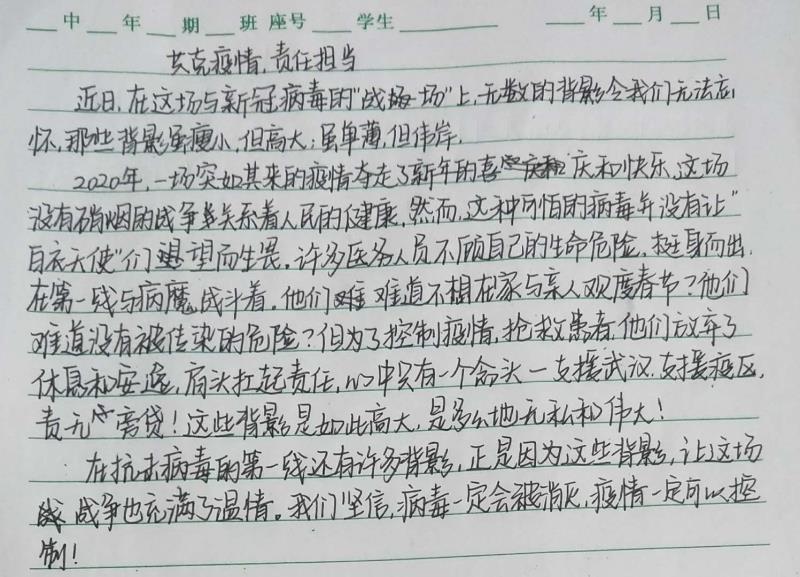 中 年 期 班 座号 学生 年 月 日
共克疫情,责任担当
近日,在这场与新冠病毒的"战场"上,无数的背影令我们无法忘
怀,那些背影虽瘦小,但高大;虽单薄,但伟岸.
2020年,一场突如其来的疫情夺走了新年的喜庆和快乐.这场
没有硝烟的战争关系着人民的健康.然而,这种可怕的病毒并没有让"
白衣天使"们望而生畏.许多医务人员不顾自己的生命危险,挺身而出.
在第一线与病魔战斗着.他们难道不想在家与亲人欢度春节?他们
难道没有被传染的危险?但为了控制疫情,抢救患者.他们放弃了
休息和安逸,肩头扛起责任,心中只有一个念头一支援武汉.支援疫区,
责无旁贷!这些背影是如此高大,是多么地无私和伟大!
在抗击病毒的第一线还有许多背影,正是因为这些背影,让这场
战争也充满了温情。我们坚信,病毒一定会被消灭,疫情一定可以控
制!